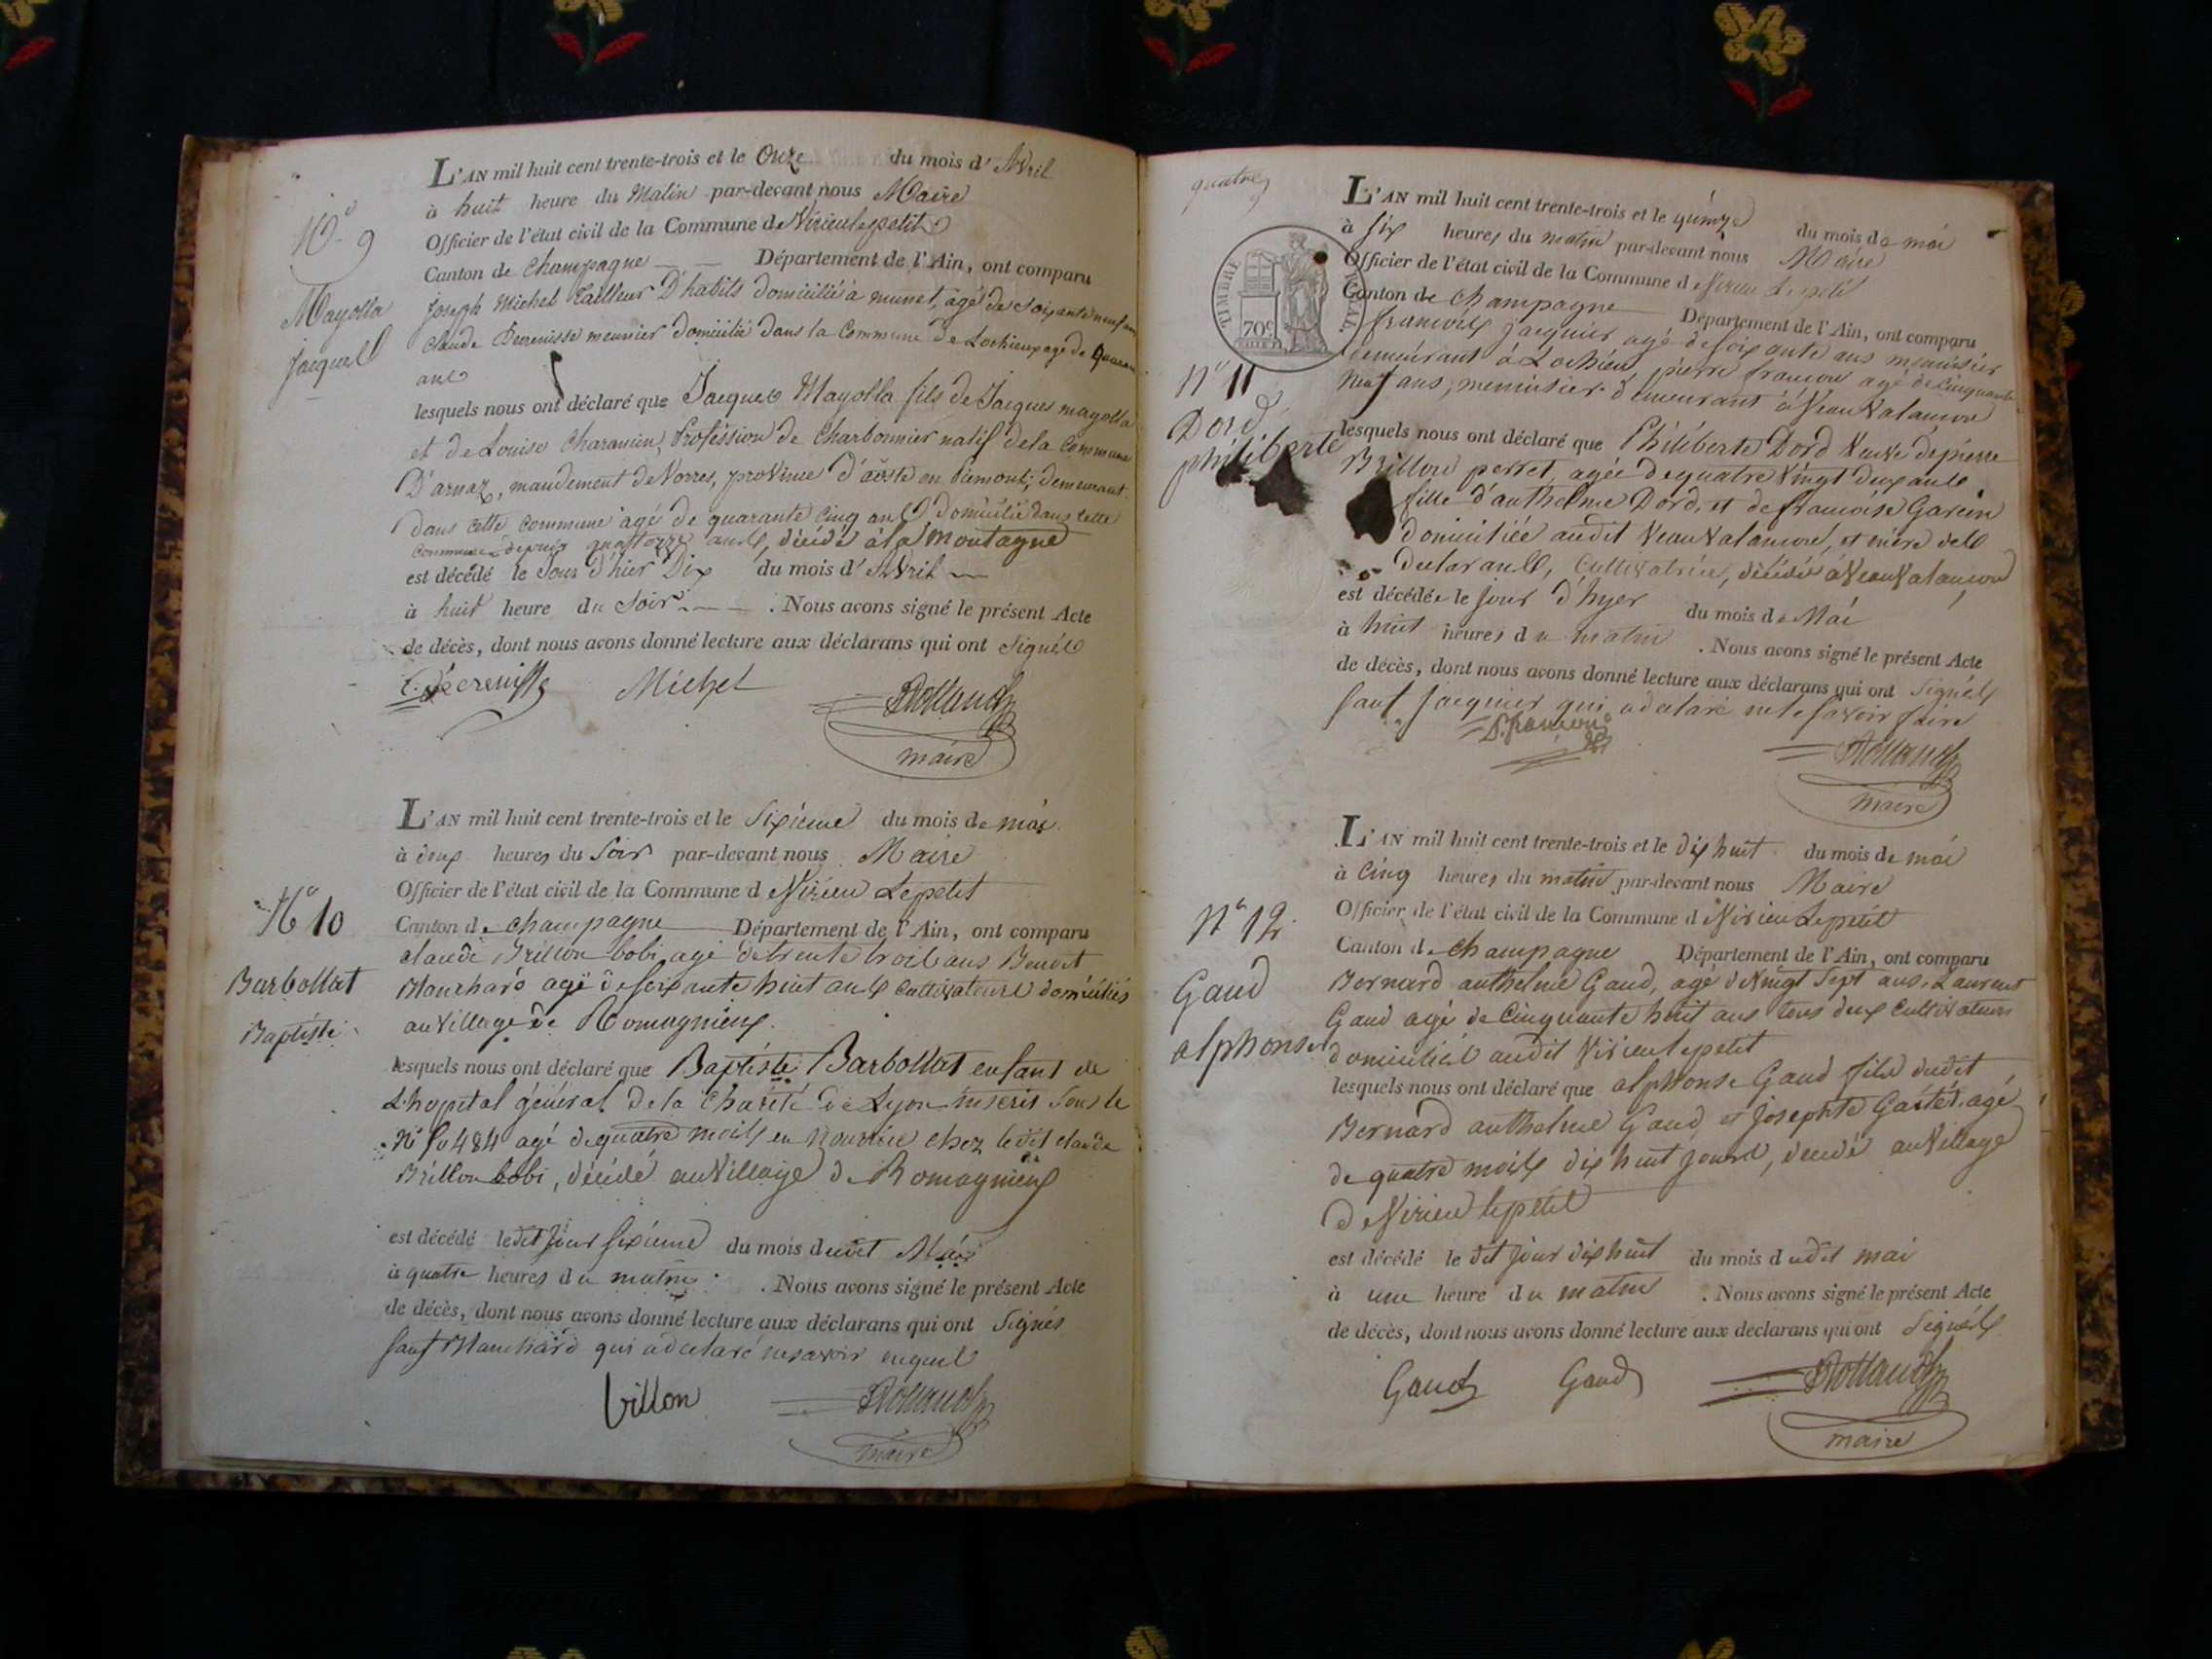 N° 9
Mayolla
Jacques
L'AN mil huit cent trente-trois et le Onze du mois d'Avril
à huit heure du Matin par-devant nous Maire
Officier de l'état civil de la Commune de Virieulepetit
Canton de Champagne Département de l'Ain, ont comparu
Joseph Michel Tailleur D'habits domicilié à munet, âgé de soixante neuf ans
Claude Decrenisse meunier domicilié dans la Commune de Lochieux agé de
ans
lesquels nous ont déclaré que Jacques Mayolla fils de Jacques mayolla
et de Louise Charamin, Profession de Charbonnier natif de la Commune
D'arnaz, mandement de Vorres, province d'aoste en Piemont, demeurant
dans cette commune agé de quarante cinq ans Domicilié dans cette
commune depuis quatorze ans, décédé à la montagne
est décédé le Jour d'hier Dix du mois d'Avril
à huit heure du Soir . Nous avons signé le présent Acte
de décès, dont nous avons donné lecture aux déclarans qui ont signés
C. Décrenisse Michel Rolland
maire
N° 10
Barbollat
Baptiste
L'AN mil huit cent trente-trois et le Sixieme du mois de mai
à deux heures du Soir par-devant nous Maire
Officier de l'état civil de la Commune d eVirieu Lepetit
Canton de Champagne Département de l'Ain, ont comparu
claude Brillon bobi agé de trente trois ans Benoit
Blanchard agé de soixante huit ans cultivateurs domiciliés
au village de Romagnieux.
lesquels nous ont déclaré que Baptiste Barbollat enfant de
L'hopital général de la Charité de Lyon inscrit sous le
N° 484 agé de quatre mois en Nourrice chez ledit claude
Brillon bobi, décédé au village de Romagnieux
est décédé ledit Jour sixieme du mois dudit Mai
à quatre heures du matin . Nous avons signé le présent Acte
de décès, dont nous avons donné lecture aux déclarans qui ont Signés
sauf Blanchard qui a déclaré ne savoir
brillon Rolland
maire
quatre
TIMBRE ROYAL
70c
N° 11
Dord
philiberte
L'AN mil huit cent trente-trois et le quinze du mois de mai
à six heures du matin par-devant nous Maire
Officier de l'état civil de la Commune d eVirieu Lepetit
Canton de Champagne Département de l'Ain, ont comparu
francois Jacquier agé de soixante ans menuisier
demeurant à Lochieu, pierre francon agé de cinquante
neuf ans, menuisier demeurant à Veauvalancon
lesquels nous ont déclaré que Philiberte Dord Veuve de pierre
Brillon perret, agée de quatre vingt deux ans
fille d'anthelme Dord, et de francoise Garcin
domiciliée audit Veauvalancon, et mère des
declarans, Cultivatrice, décédée à Veauvalancon
est décédée le jour d'hyer du mois de Mai
à huit heures du matin . Nous avons signé le présent Acte
de décès, dont nous avons donné lecture aux déclarans qui ont Signés
sauf Jacquier qui a déclaré ne le savoir faire
P. francon Rolland
maire
N° 12
Gaud
alphonse
L'AN mil huit cent trente-trois et le dix huit du mois de mai
à Cinq heures du matin par-devant nous Maire
Officier de l'état civil de la Commune d eVirieu Lepetit
Canton de Champagne Département de l'Ain, ont comparu
Bernard anthelme Gaud, agé de Vingt Sept ans, Laurent
Gaud agé de Cinquante huit ans tous deux Cultivateurs
domiciliés audit Virieulepetit
lesquels nous ont déclaré que alphonse Gaud fils dudit
Bernard anthelme Gaud, et Josephte Gastet, agé
de quatre mois dix huit jours, décédé au Village
de Virieu lepetit
est décédé le dit jour dix huit du mois dudit mai
à une heure du matin . Nous avons signé le présent Acte
de décès, dont nous avons donné lecture aux déclarans qui ont Signés
Gaud Gaud Rolland
maire